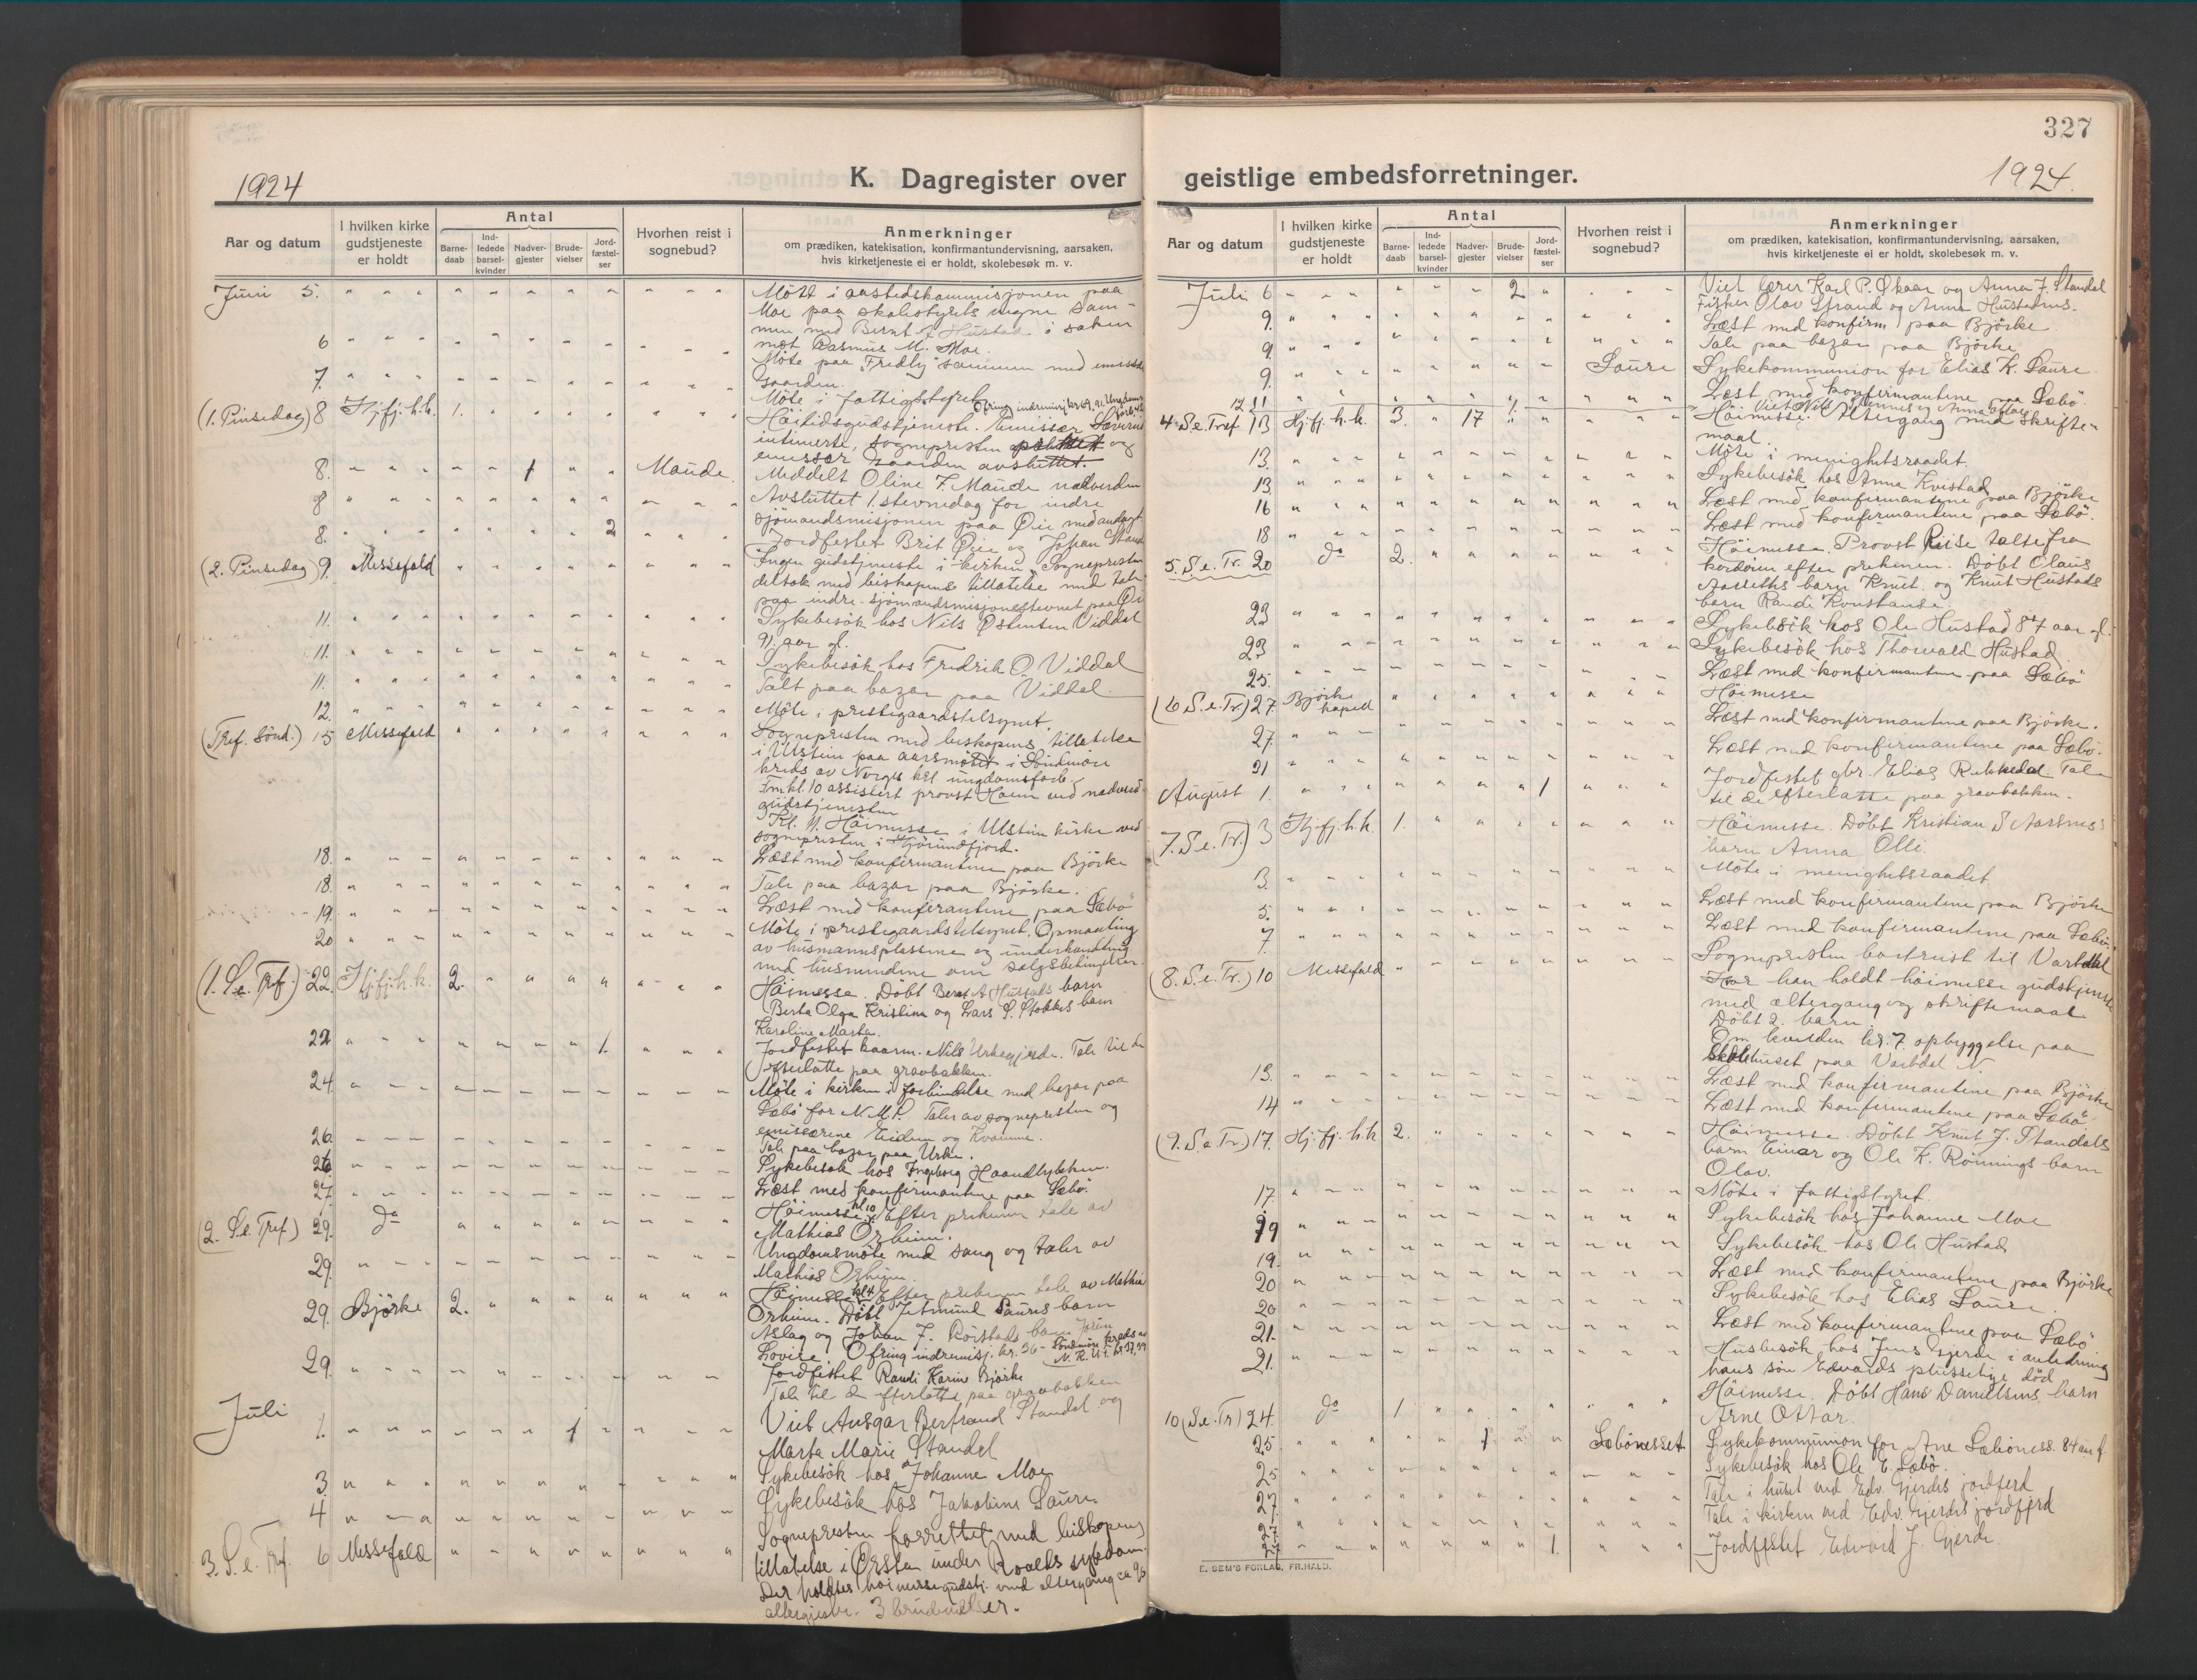 1924
K. Dagregister over
Aar og datum
I hvilken kirke gudstjeneste er holdt
Antal
Barnedaab
Indledede barselkvinder
Nadvergjester
Brudevielser
Jordfæstelser
Hvorhen reist i sognebud?
Anmerkninger
om prædiken, katekisation, konfirmantundervisning, aarsaken,
hvis kirketjeneste ei er holdt, skolebesøk m. v.
Juni 5. Møtt i aastedskommisjonen paa
Moe paa skolestyrets vegne sam-
men med Bernt A Hustad i saken
6 mot Rasmus M. Moe.
Møte paa "Fredly" sammen med
7. Gaarden.
Møte i fattigstyret
(1. Pinsedag) 8 Hjfj. h.k. 1. Høitidsgudstjeneste. Emissær
intimerte, sognepresten og
emissær Gaarden avsluttet.
8. 1 Maude. Meddelt Oline F. Maude nadverden
8 Avsluttet 1. stevnedag for indre
sjömandsmisjonen paa Øie med andagt
8. 2 Jordfestet Brit Øie og Johan
(2. Pinsedag) 9. Messefald Ingen gudstjeneste i kirken. Sognepresten
deltok med biskopens tillatelse med tale
paa indre sjömandsmisjonsstevnet paa Øie
11. Sykebesök hos Nils Østensen Viddal
91 aar gl.
11. Sykebesök hos Fredrik O. Viddal
11. Talt paa bazar paa Viddal.
12. Møte i prestegaardstilsynet.
(Tref. Sönd.) 15 Messefald Sognepresten med biskopens tillatelse
i Ulstein paa aarsmøtet i Söndmøre
kreds av Norges krl. ungdomsforb.
Fm kl. 10 assistert provst ved nadverd-
gudstjenesten
Kl. 11. Höimesse i Ulstein kirke ved
sognepresten i Hjörundfjord.
18. Læst med konfirmantene paa Björke
18. Tale paa bazar paa Björke.
19. Læst med konfirmantene paa Sæbö
20 Møte i prestegaardstilsynet. Opmaaling
av husmannsplassene og underhandling
med husmendene om salgsbetingelser.
(1. S.e. Tref.) 22. Hjfj. h.k. 2. Höimesse. Döbt Bernt A Hustads barn
Berta Olga Kristine og Lars S. Stokkes barn
Karoline Marta.
22 1. Jordfestet kaarm. Nils Urkegjerde. Tale til de
efterlatte paa gravbakken.
24. Møte i kirken i forbindelse med bazar paa
Sæbö for N.M.S. Taler av sognepresten og
emissærene Eidem og Kvamme.
26. Tale paa bazar paa Urke.
26. Sykebesøk hos Ingeborg Haandlykken.
27. Læst med konfirmantene paa Sæbö.
(2. S.e. Tref.) 29. do Höimesse kl 10 Efter prekenen tale av
Mathias Orheim.
29. Ungdomsmöte med sang og taler av
Mathias Orheim
29. Björke 2. Höimesse kl 4 Efter prekenen tale av Mathias
Orheim. Döbt Jetmund Saures barn
Aslag og Johan J. Rörstads barn
Lovise. Ofring indremisj. kr. 36-
29. Jordfestet Randi Karine Björke
Tale til de efterlatte paa gravbakken
Juli
1. 1 Viet Ansgar Berfrand Standal og
Marta Marie Standal
3 Sykebesök hos Johanne Moe
4 Sykebesök hos Jakobine Saure
3. S.e. Tref. 6 Messefald Sognepresten forrettet med biskopens
tillatelse i Ørsta under Roalds sykdom.
Der holdtes höimessegudstj. med altergang ca 90
altergjester. 3 brudevielser.
327
geistlige embedsforretninger.
1924.
Aar og datum
I hvilken kirke gudstjeneste er holdt
Antal
Barnedaab
Indledede barselkvinder
Nadvergjester
Brudevielser
Jordfæstelser
Hvorhen reist i sognebud?
Anmerkninger
om prædiken, katekisation, konfirmantundervisning, aarsaken,
hvis kirketjeneste ei er holdt, skolebesøk m. v.
Juli 6 2 Viet lærer Karl P. Økaar og Anna J. Standal
Fisker Olav Strand og Anna Hustadnes.
9. Læst med konfirm. paa Björke.
9. Tale paa bazar paa Björke
9. Saure Sykekommunion for Elias K. Saure.
12 11 Læst med konfirmantene paa Sæbö.
4. S.e. Tref. 13 Hj.fj. h.k. 3. 17 Höimesse Altergang med skrifte-
maal.
13. Møte i menighetsraadet.
13. Sykebesök hos Anne Kvistad
16 Læst med konfirmantene paa Björke
18 Læst med konfirmantene paa Sæbö.
5. S.e. Tr. 20 do 2. Höimesse. Provst Riise talte fra
kordören efter prekenen. Döbt Claus
Aarseths barn Knut og Knut Hustads
barn Randi Konstanse.
23 Sykebesök hos Ole Hustad 87 aar gl.
23 Sykebesök hos Thorvald Hustad.
25. Læst med konfirmantene paa Sæbö
(6 S.e. Tr.) 27. Björke kapell Höimesse
27. Læst med konfirmantene paa Björke.
31 Læst med konfirmantene paa Sæbö.
August 1. 1 Jordfestet gbr. Elias Rekkedal. Tale
til de efterlatte paa gravbakken.
7. S.e. Tr.) 3 Hj.fj. h.k. 1. Höimesse. Döbt Kristian S Aarsnes's
barn Anna Olli.
3. Møte i menighetsraadet.
5. Læst med konfirmantene paa Björke
7 Læst med konfirmantene paa Sæbö.
(8. S.e. Tr.) 10 Messefald Sognepresten bortreist til Vartdal
hvor han holdt höimesse gudstjeneste
med altergang og skriftemaal
Döbt 2 barn
Om kvelden kl. 7 opbyggelse paa
Skolehuset paa Vartdal N.
13. Læst med konfirmantene paa Björke
14 Læst med konfirmantene paa Sæbö
(9. S.e. Tr.) 17. Hj.fj. h.k 2. Höimesse. Döbt Knut J. Standals
barn Einar og Ole K. Rönnings barn
Olav.
17. Møte i fattigstyret.
19 Sykebesök hos Johanne Moe
19. Sykebesök hos Ole Hustad
20 Læst med konfirmantene paa Björke
20 Sykebesök hos Elias Saure.
21. Læst med konfirmantene paa Sæbö
21. Husbesök hos Jens Gjerde i anledning
hans sön Edvards plusselige död
10 (S.e. Tr) 24. do 1 Höimesse. Döbt Hans Danielsens barn
Arne Ottar.
25. 1 Sæbönesset Sykekommunion for Ane Sæböness. 84 aar gl.
25 Sykebesök hos Ole E. Sæbö.
27. Tale i huset ved Edv. Gjerdes jordferd
27. Tale i kirken ved Edv. Gjerdes jordferd
27 1. Jordfestet Edvard J. Gjerde
E. SEM'S FORLAG, FR.HALD.